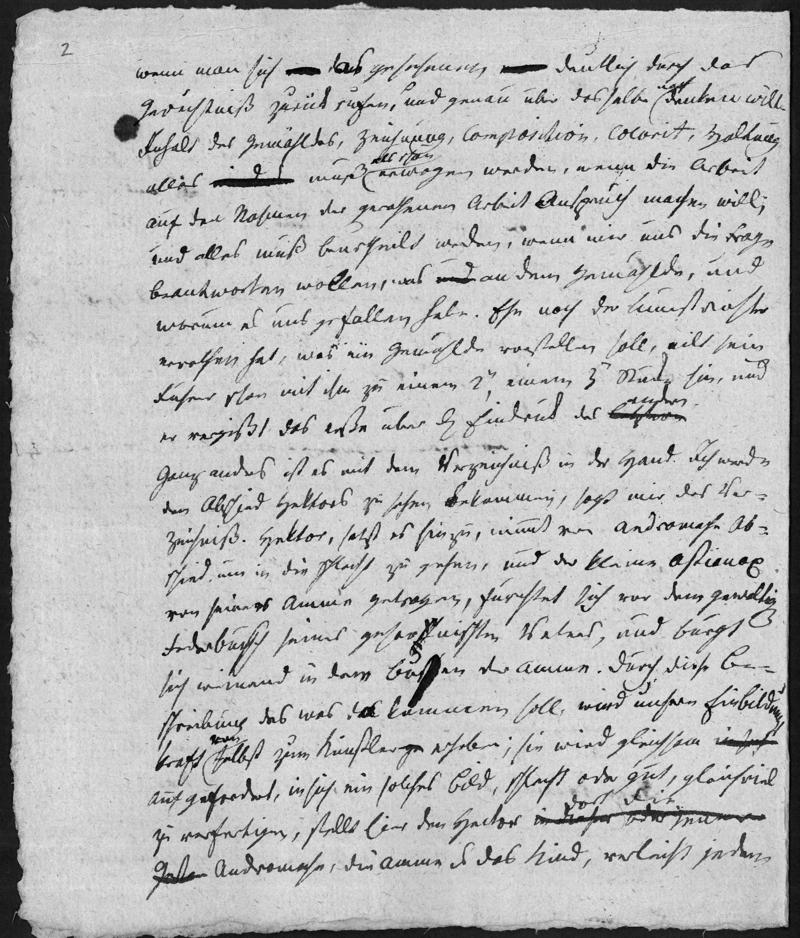 2
wenn man sich das gesehene deutlich durch das
Gedächtniß zurück rufen, und genau über dasselbe denken will.
Inhalt des Gemähldes, Zeichnung, Composition, Colorit, Haltung
alles muß erwogen werden, wenn die Arbeit
auf den Nahmen der Arbeit Anspruch machen will;
und alles muß beurtheilt werden, wenn wir uns die Frage
beantworten wollen, was und an dem Gemählde, und
warum es uns gefallen habe. Ehe noch der Kunstrichter
errathen hat, was ein Gemählde vorstellen soll, eilt sein
Führer schon mit ihm zu einem 2, einem 3 Stück hin, und
er vergißt das erste über Eindruck des andern.
Ganz anders ist es mit dem Verzeichniß in der Hand. Ich werde
den Abschied Hektors zu sehen bekommen, sagt mir das Ver-
zeichniß. Hektor, setzt es hinzu, nimmt von Andromache Ab-
schied, um in die Schlacht zu gehen, und der kleine Astianax
von seiner Amme getragen, fürchtet sich vor dem
Federbusch seines Vaters, und
sich weinend in dem Busen der Amme. Durch diese Be-
schreibung des was da kommen soll, wird unsere Einbildungs
kraft von selbst zum Künstler erhoben; sie wird gleichsam
aufgefordert, in sich ein solches Bild, schlecht oder gut, gleichviel
zu verfertigen, stellt hier den Hector dort die
Andromache, die Amme u das Kind, verleiht jedem